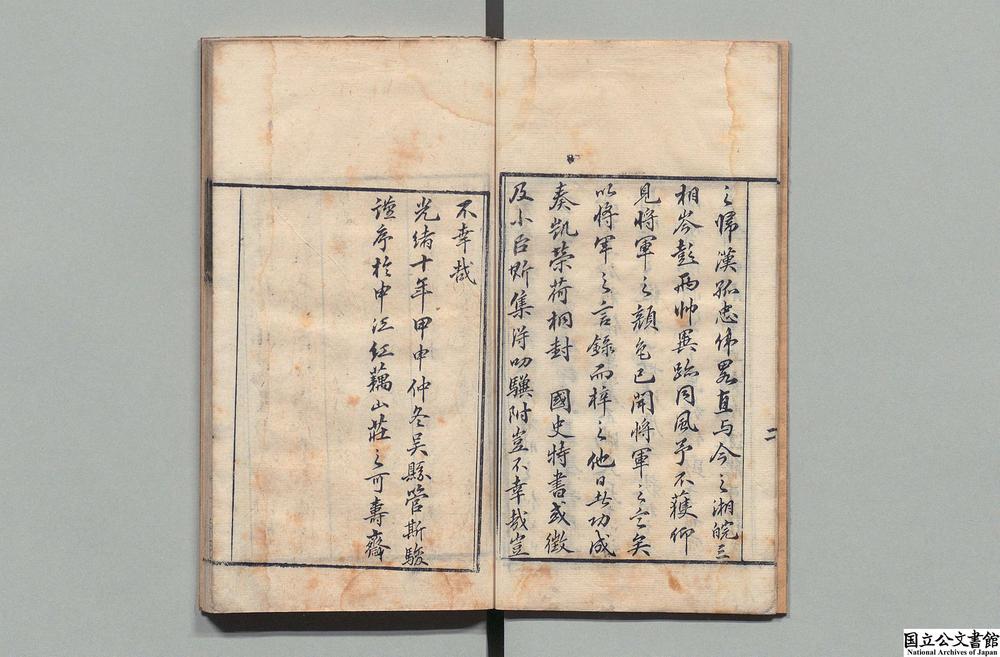 之歸漢孤忠偉畧直与今之湘皖三
相岑彭兩帥異跡同風予不獲仰
見將軍之顏色已聞將軍之言矣
以將軍之言錄而梓之他日者功成
奏凱榮荷桐封 國史特書或徵
及小臣斯集得叨驥附豈不幸哉豈
二
不幸哉
光緒十年甲申仲冬吴縣管斯駿
謹序於申江紅藕山莊之可壽齋
国立公文書館
National Archives of Japan